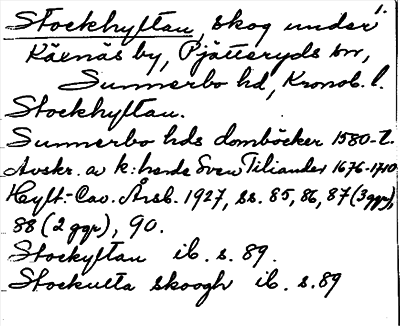 1.
Stockhyltan, skog under
Käxnäs by, Pjätteryds sn,
Sunnerbo hd, Kronob. l.
Stockhyltan.
Sunnerbo hds domböcker 1580-t.
Avskr. av k:herde Sven Tiliander 1676-1710
Hylt.-Cav. Årsb. 1927, ss. 85, 86, 87 (3 ggr),
88 (2 ggr), 90.
Stockyltan ib. s. 89.
Stockulta skoogh ib. s. 89